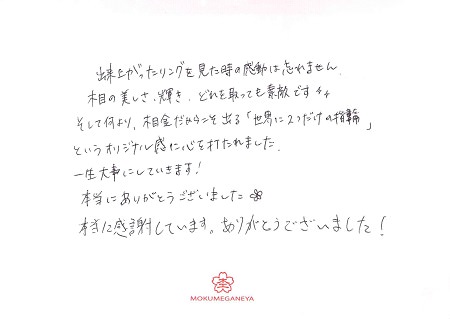 出来上がったリングを見た時の感動は忘れません.
木目の美しさ、輝き、どれを取っても素敵です
そして何より、木目金だからこそ出る「世界に2つだけの指輪」
というオリジナル感に心を打たれました.
一生大事にしていきます!
本当にありがとうございました
本当に感謝しています。ありがとうございました!
MOKUMEGANEYA